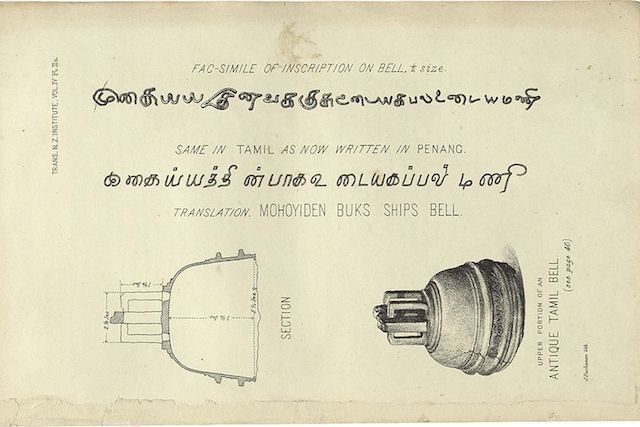 TRANS. N.Z. INSTITUTE, VOL. IV Pl. IIa.
FAC-SIMILE OF INSCRIPTION ON BELL. ¼ size.
முகையயதீனவககுசுஉடையகபலஉடையமணி
SAME IN TAMIL AS NOW WRITTEN IN PENANG.
முகைய்யத்தி ன்பாகஉ டையகப்பல்
TRANSLATION. MOHOYIDEN BUKS SHIPS BELL.
SECTION
UPPER PORTION OF AN
ANTIQUE TAMIL BELL.
(see page 40)
J. Buchanan lith.